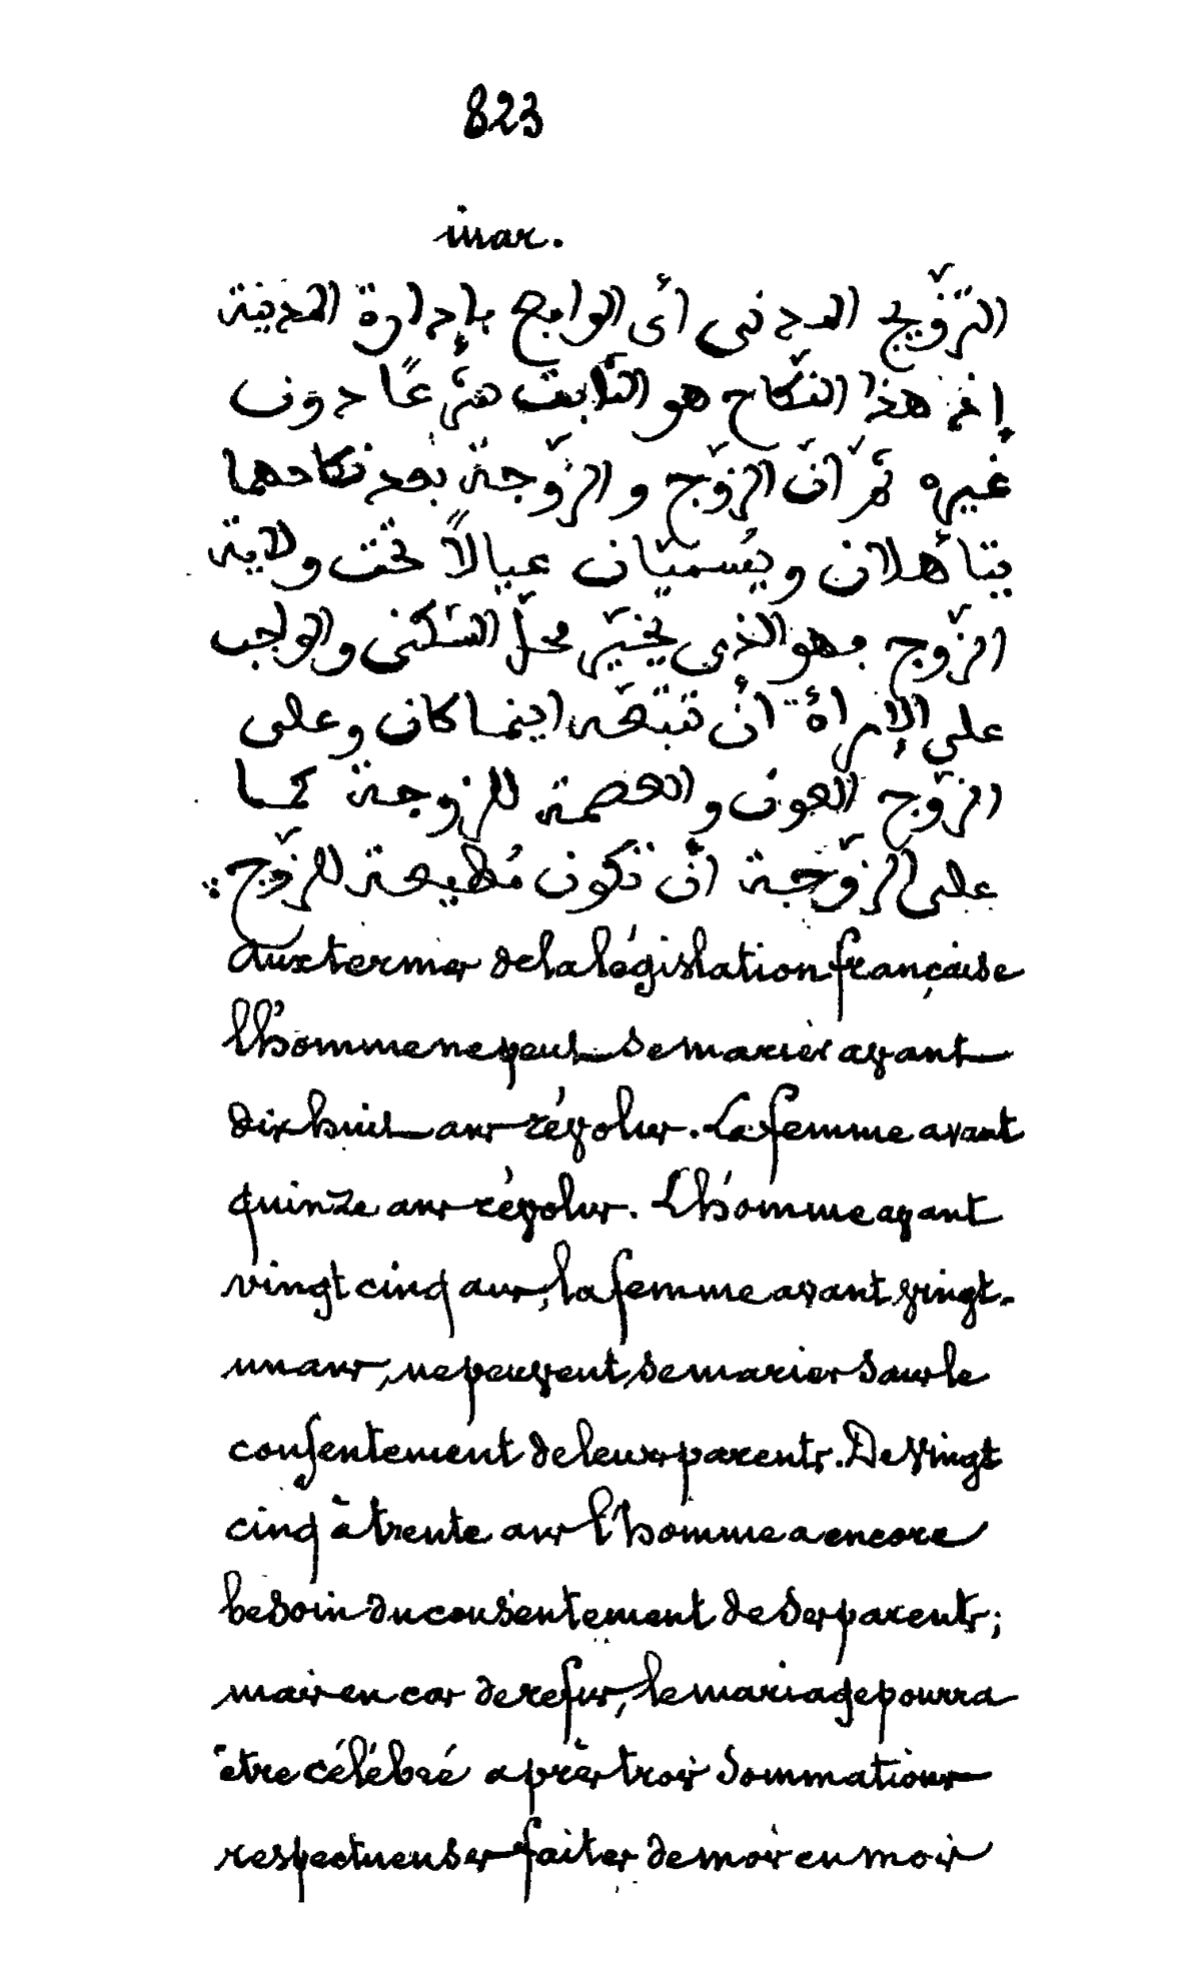 823
mar.
التزّويج المدني أي الواقع بإدارة المدينة
إذ هذا النّكاح هو الثّابت شرعًا دون
غيره ثمّ انّ الزّوج و الزّوجة بعد نكاحهما
يتأهلان ويُسمّيان عيالاً تحت ولاية
الزّوج وهو الذي يخيّر محلّ السّكنى والواجب
على الإمرأة أن تتبعّه اينما كان وعلى
الزّوج العون والعصمة للزوجة كما
على الزّوجة أن تكون مُطيعة للزّوج
Aux termes de la législation française
l'homme ne peut se marier avant
dix huit ans révolus. La femme avant
quinze ans révolus. L'homme avant
vingt cinq ans, la femme avant vingt-
un ans, ne peuvent se marier sans le
consentement de leurs parents. De vingt
cinq à trente ans l'homme a encore
besoin du consentement de ses parents;
mais en cas de refus, le mariage pourra
être célébré après trois sommations
respectueuses faites de mois en mois